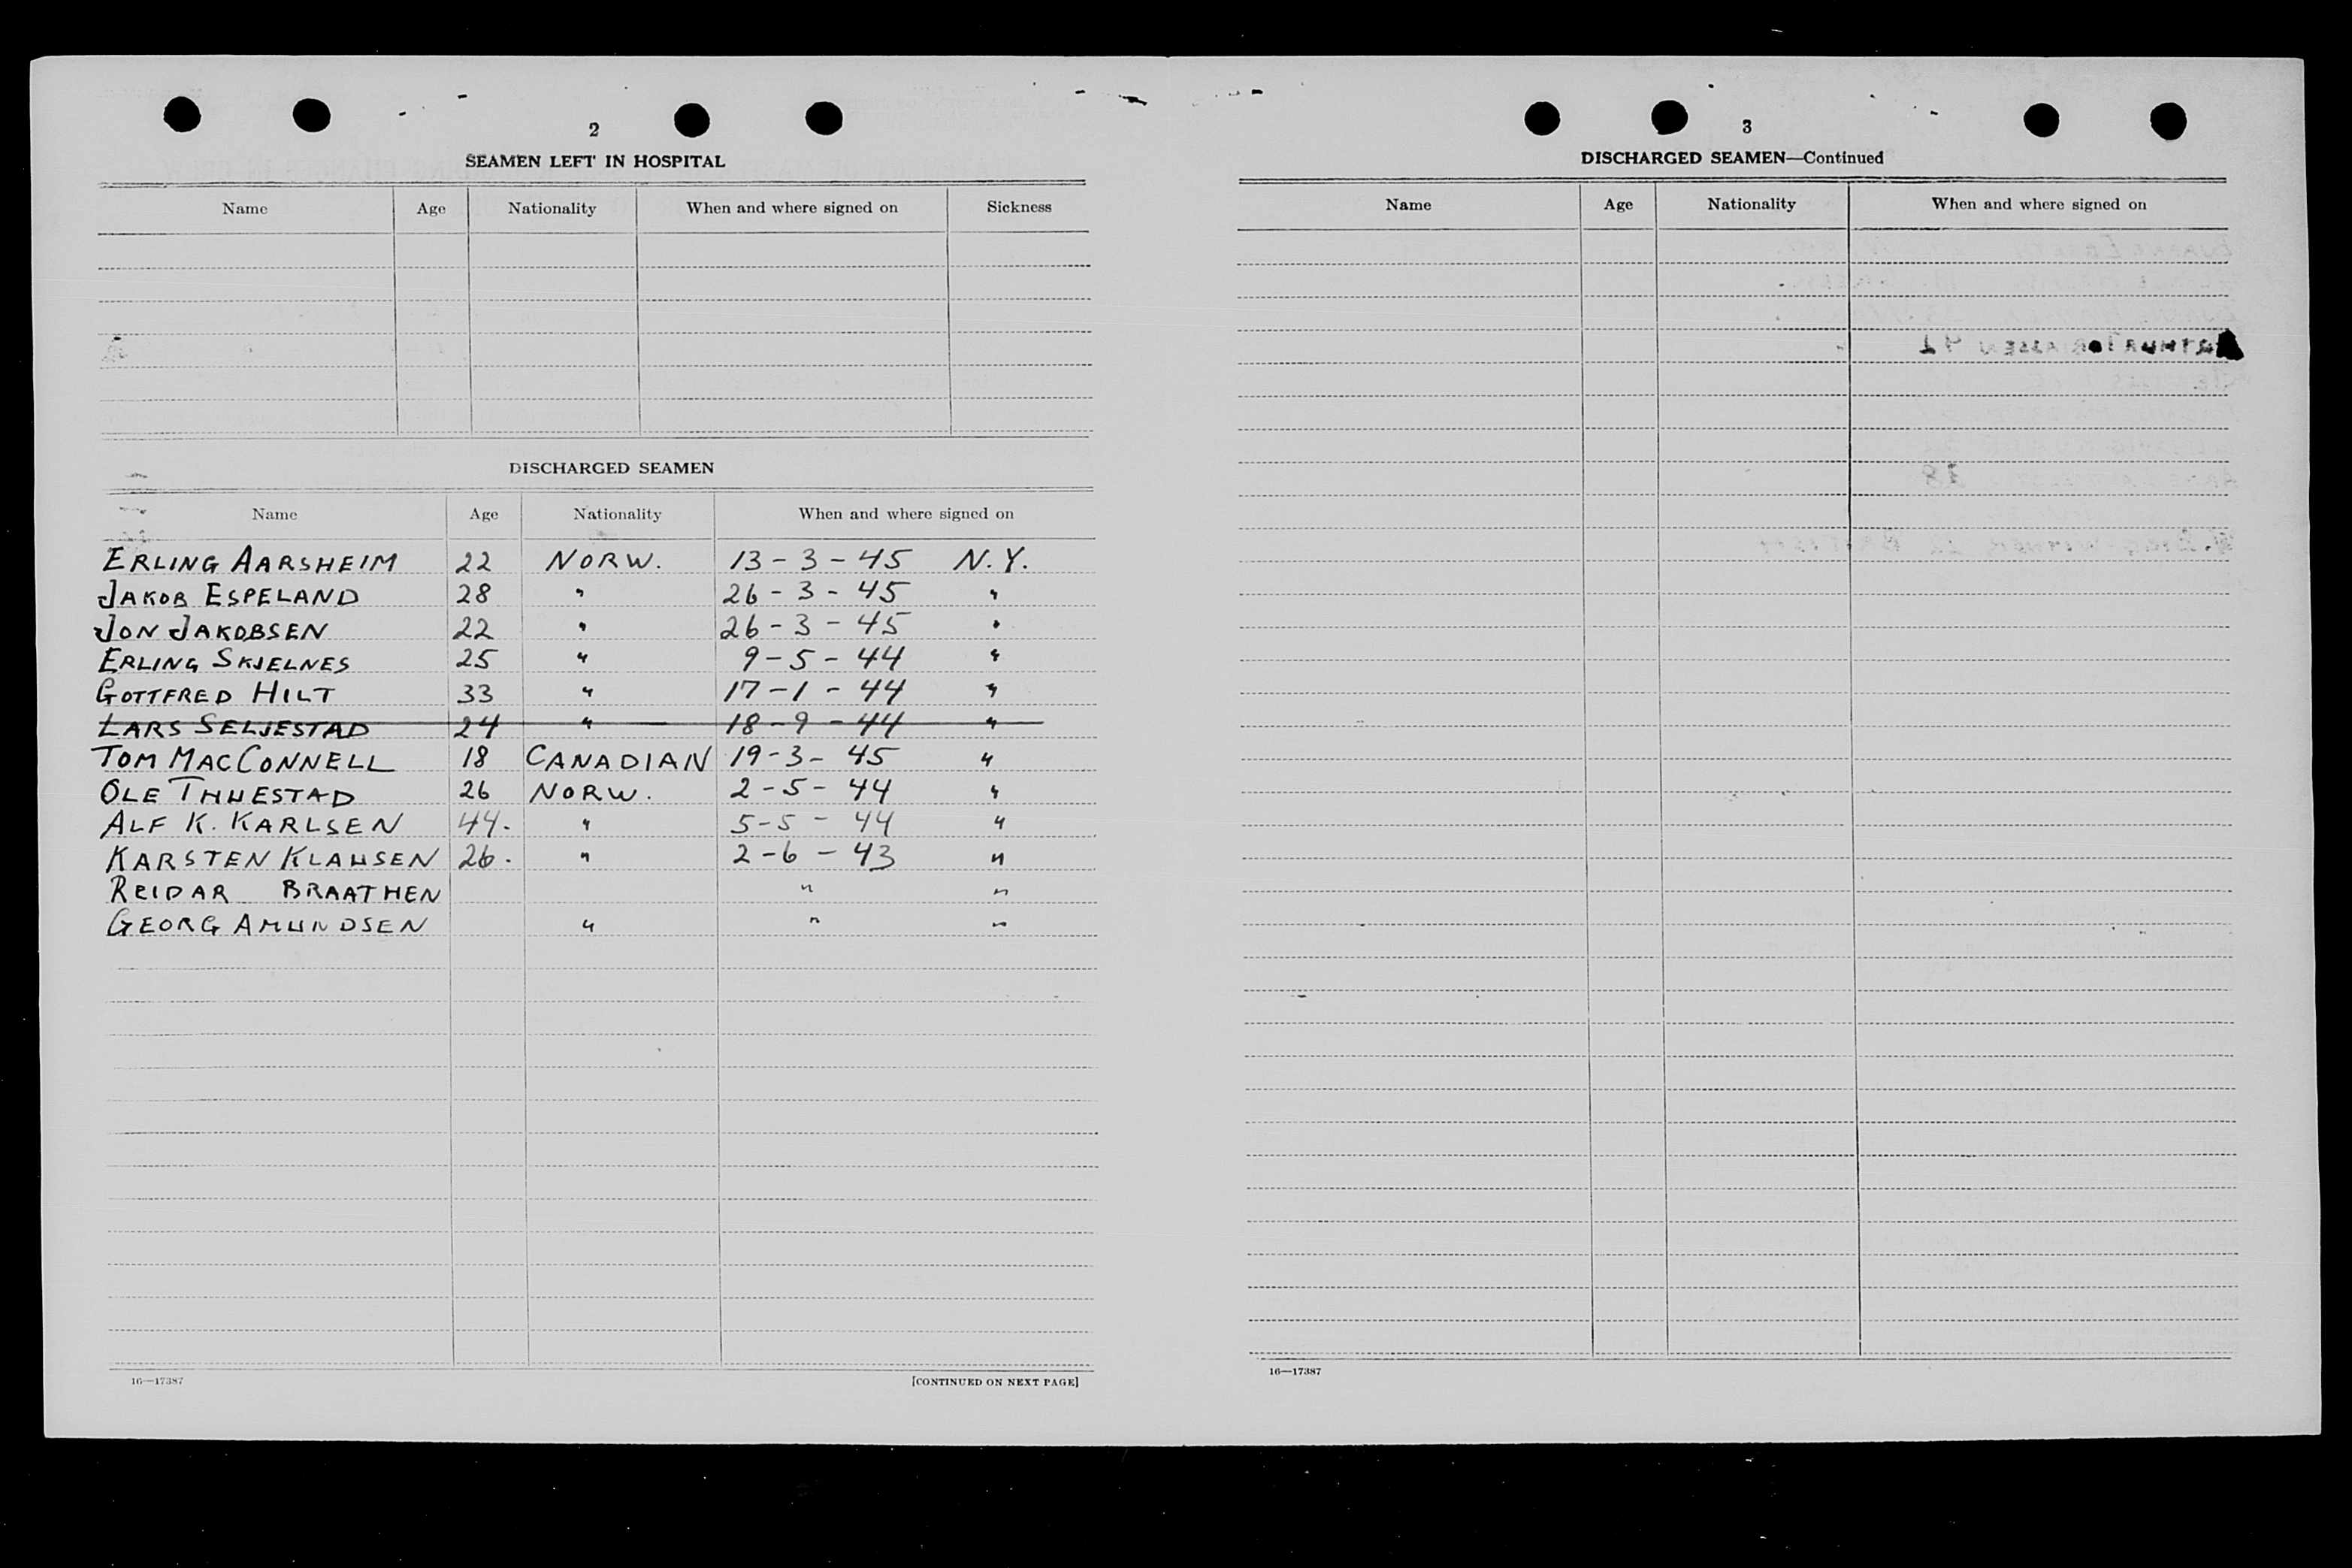 2
SEAMEN LEFT IN HOSPITAL
Name Age Nationality When and where signed on Sickness
DISCHARGED SEAMEN
Name Age Nationality When and where signed on
ERLING AARSHEIM 22 NORW. 13-3-45 N.Y.
JAKOB ESPELAND 28 " 26-3-45 "
JON JAKOBSEN 22 " 26-3-45 "
ERLING SKJELNES 25 " 9-5-44 "
GOTTFRED HILT 33 " 17-1-44 "
LARS SELJESTAD 24 " 18-9-44 "
TOM MACCONNELL 18 CANADIAN 19-3-45 "
OLE THUESTAD 26 NORW. 2-5-44 "
ALF K. KARLSEN 44. " 5-5-44 "
KARSTEN KLAUSEN 26. " 2-6-43 "
REIDAR BRAATHEN " "
GEORG AMUNDSEN " " "
16—17387 [CONTINUED ON NEXT PAGE]
3
DISCHARGED SEAMEN—Continued
Name Age Nationality When and where signed on
16—17387